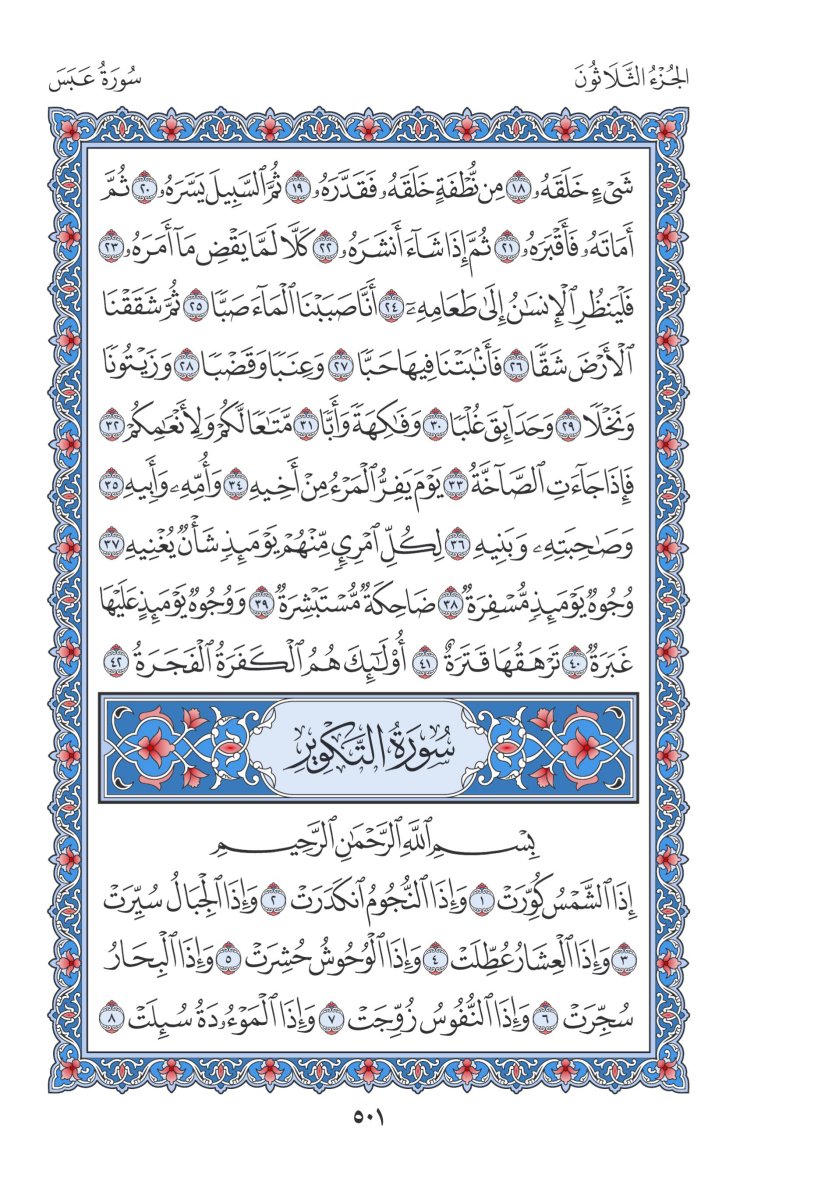 الجُزْءُ الثَّلَاثُونَ
سُورَةُ عَبَسَ
شَىْءٍ خَلَقَهُۥ ١٨ مِن نُّطْفَةٍ خَلَقَهُۥ فَقَدَّرَهُۥ ١٩ ثُمَّ ٱلسَّبِيلَ يَسَّرَهُۥ ٢٠ ثُمَّ
أَمَاتَهُۥ فَأَقْبَرَهُۥ ٢١ ثُمَّ إِذَا شَآءَ أَنشَرَهُۥ ٢٢ كَلَّا لَمَّا يَقْضِ مَآ أَمَرَهُۥ ٢٣
فَلْيَنظُرِ ٱلْإِنسَٰنُ إِلَىٰ طَعَامِهِۦٓ ٢٤ أَنَّا صَبَبْنَا ٱلْمَآءَ صَبًّا ٢٥ ثُمَّ شَقَقْنَا
ٱلْأَرْضَ شَقًّا ٢٦ فَأَنۢبَتْنَا فِيهَا حَبًّا ٢٧ وَعِنَبًا وَقَضْبًا ٢٨ وَزَيْتُونًا
وَنَخْلًا ٢٩ وَحَدَآئِقَ غُلْبًا ٣٠ وَفَٰكِهَةً وَأَبًّا ٣١ مَّتَٰعًا لَّكُمْ وَلِأَنْعَٰمِكُمْ ٣٢
فَإِذَا جَآءَتِ ٱلصَّآخَّةُ ٣٣ يَوْمَ يَفِرُّ ٱلْمَرْءُ مِنْ أَخِيهِ ٣٤ وَأُمِّهِۦ وَأَبِيهِ ٣٥
وَصَٰحِبَتِهِۦ وَبَنِيهِ ٣٦ لِكُلِّ ٱمْرِئٍ مِّنْهُمْ يَوْمَئِذٍ شَأْنٌ يُغْنِيهِ ٣٧
وُجُوهٌ يَوْمَئِذٍ مُّسْفِرَةٌ ٣٨ ضَاحِكَةٌ مُّسْتَبْشِرَةٌ ٣٩ وَوُجُوهٌ يَوْمَئِذٍ عَلَيْهَا
غَبَرَةٌ ٤٠ تَرْهَقُهَا قَتَرَةٌ ٤١ أُو۟لَٰٓئِكَ هُمُ ٱلْكَفَرَةُ ٱلْفَجَرَةُ ٤٢
سُورَةُ التَّكْوِيرِ
بِسْمِ ٱللَّهِ ٱلرَّحْمَٰنِ ٱلرَّحِيمِ
إِذَا ٱلشَّمْسُ كُوِّرَتْ ١ وَإِذَا ٱلنُّجُومُ ٱنكَدَرَتْ ٢ وَإِذَا ٱلْجِبَالُ سُيِّرَتْ
٣ وَإِذَا ٱلْعِشَارُ عُطِّلَتْ ٤ وَإِذَا ٱلْوُحُوشُ حُشِرَتْ ٥ وَإِذَا ٱلْبِحَارُ
سُجِّرَتْ ٦ وَإِذَا ٱلنُّفُوسُ زُوِّجَتْ ٧ وَإِذَا ٱلْمَوْءُۥدَةُ سُئِلَتْ ٨
٥٠١